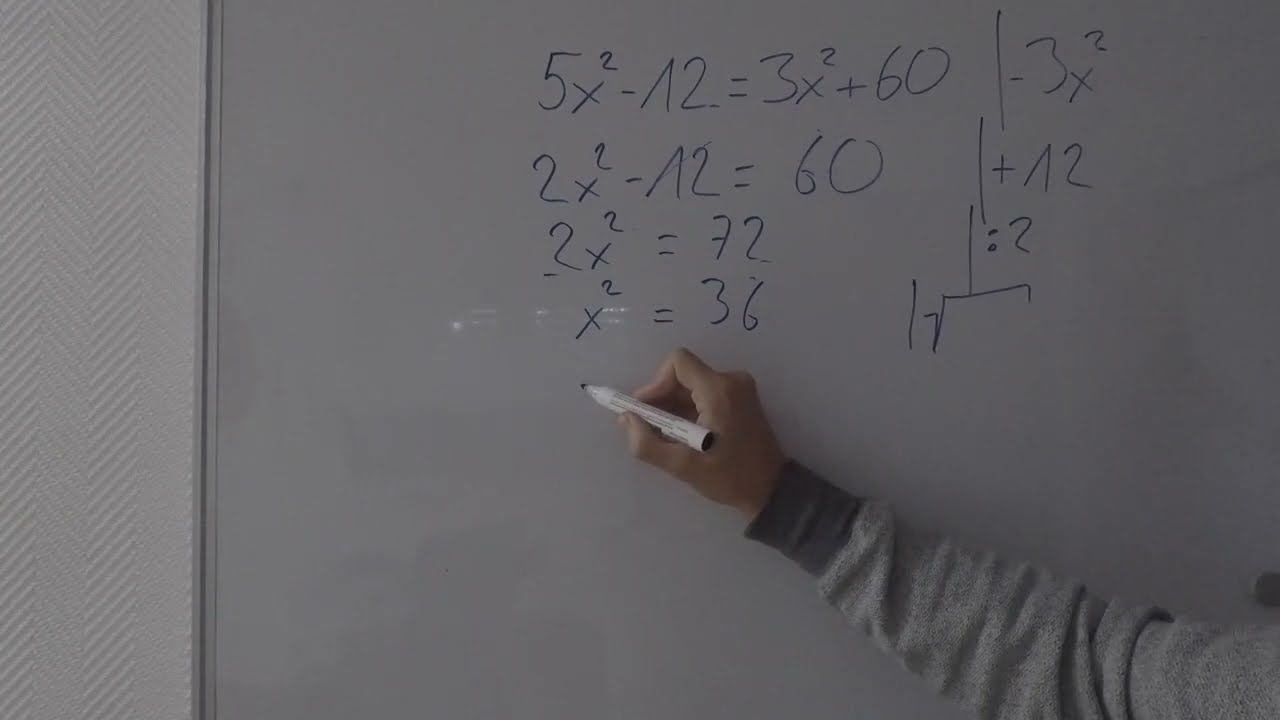 5x² - 12 = 3x² + 60 | - 3x²
2x² - 12 = 60 | + 12
2x² = 72 | : 2
x² = 36 | √